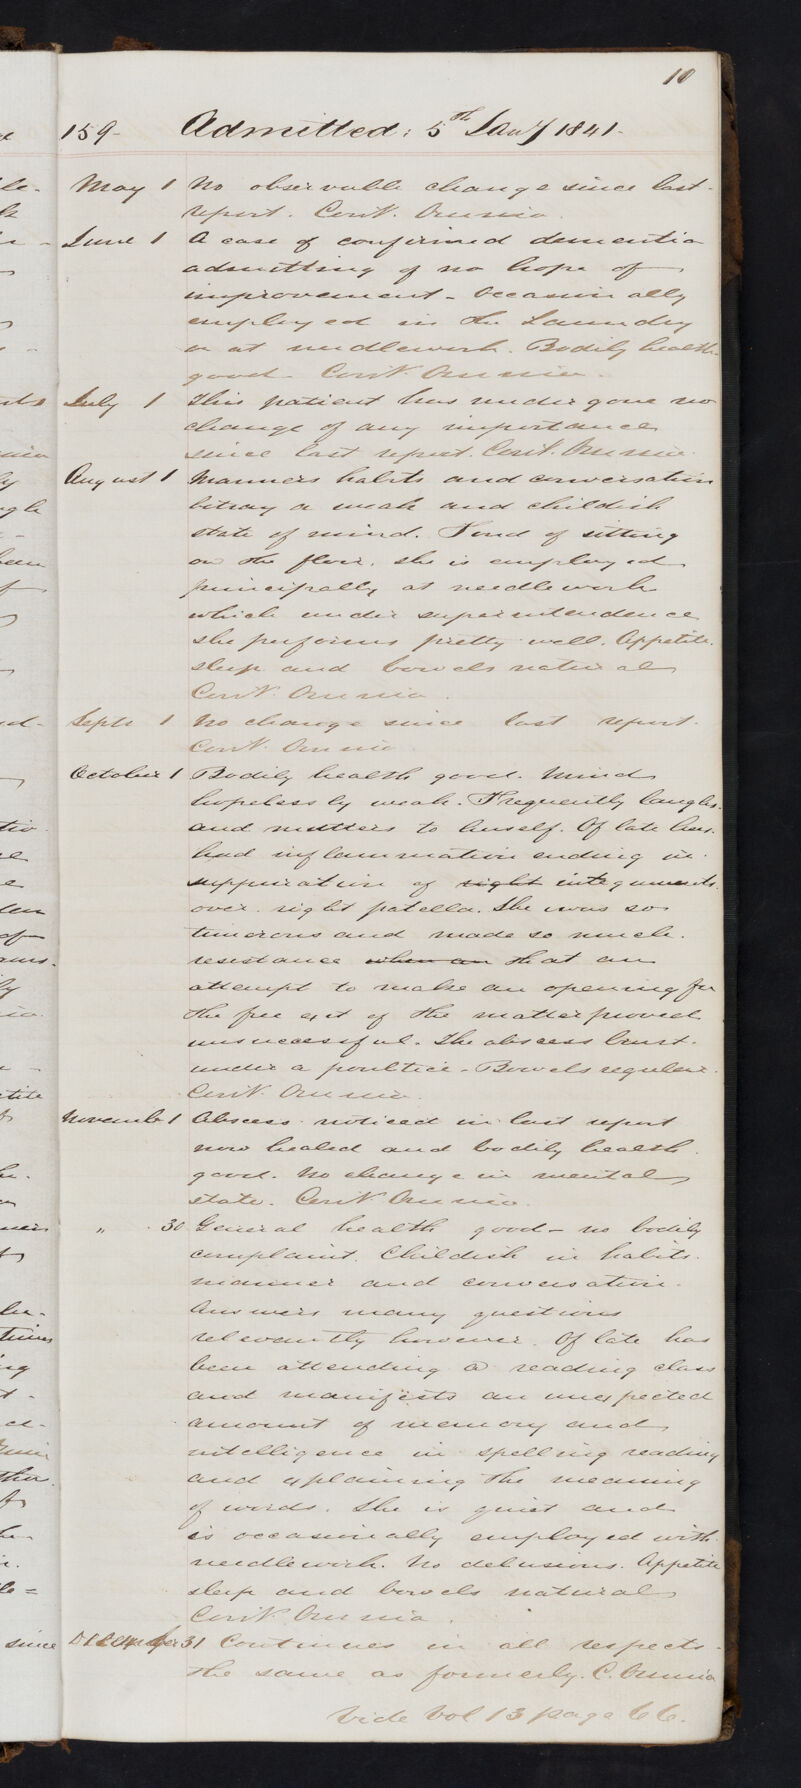 10
159- Admitted: 5th Jany 1841-
May 1 No observable change since last
report. Cont. Omnia.
June 1 A case of confirmed dementia
admitting of no hope of
improvement - Occasionally
employed in the Laundry
or at needlework. Bodily health
good. Cont. Omnia.
July 1 This patient has undergone no
change of any importance
since last report. Cont. Omnia.
August 1 Manners habits and conversation
betray a weak and childish
state of mind. Fond of sitting
on the floor. She is employed
principally at needlework
which under superintendence
she performs pretty well. Appetite
sleep and bowels natural
Cont. Omnia.
Septr 1 No change since last report.
Cont. Omnia
October 1 Bodily health good. Mind
hopelessly weak. Frequently laughs
and mutters to herself. Of late has
had inflammation ending in
suppuration of right integuments
over right patella. She was so
timorous and made so much
resistance when an that an
attempt to make an opening for
the free exit of the matter proved
unsuccessful. The abscess burst
under a poultice - Bowels regular.
Cont. Omnia.
November 1 Abscess noticed in last report
now healed and bodily health
good. No change in mental
state. Cont. Omnia.
" 30 General health good - no bodily
complaint. Childish in habits
manner and conversation.
Answers many questions
relevantly however. Of late has
been attending a reading class
and manifests an unexpected
amount of memory and
intelligence in spelling reading
and explaining the meaning
of words. She is quiet and
is occasionally employed with
needlework. No delusions. Appetite
sleep and bowels natural
Cont. Omnia.
since December 31 Continues in all respects
the same as formerly. C. Omnia
Vide Vol 13 page 66.